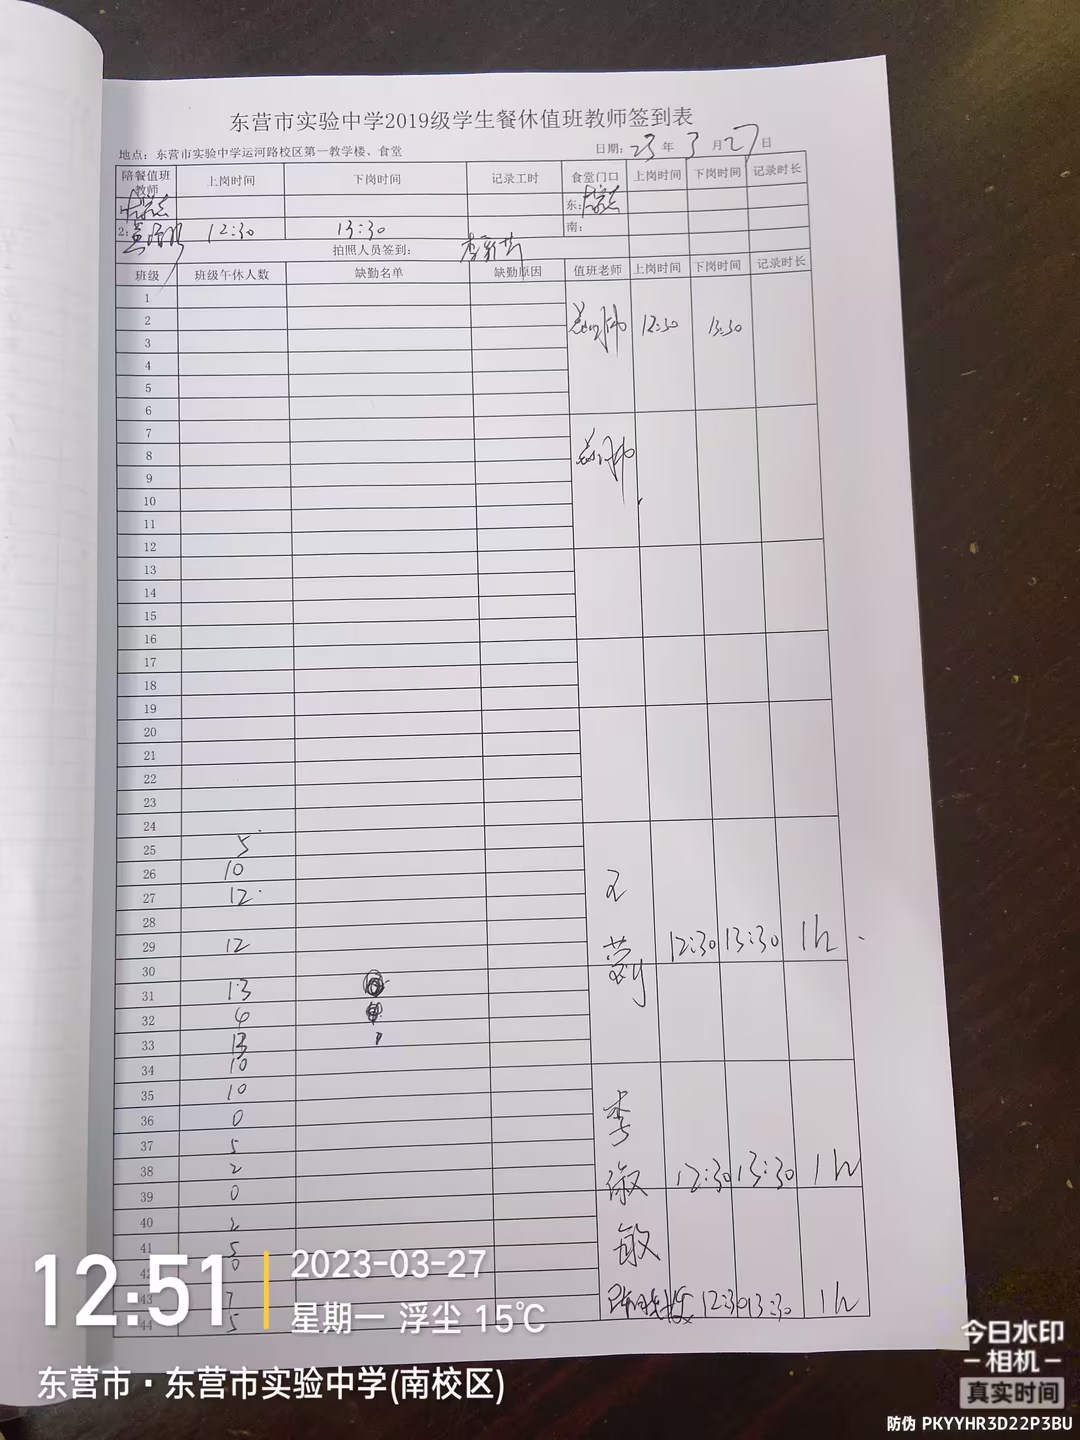 东营市实验中学2019级学生餐休值班教师签到表
地点：东营市实验中学运河路校区第一教学楼、食堂 日期：23年3月27日
陪餐值班教师 上岗时间 下岗时间 记录工时 食堂门口 上岗时间 下岗时间 记录时长
东：
2: 12:30 13:30 南：
拍照人员签到：
班级 班级午休人数 缺勤名单 缺勤原因 值班老师 上岗时间 下岗时间 记录时长
1
2 12:30 13:30
3
4
5
6
7
8
9
10
11
12
13
14
15
16
17
18
19
20
21
22
23
24
25 5
26 10
27 12
28
29 12 王 12:30 13:30 1h
30
31 13
32 4
33 13
34 10
35 10
36 0
37 5
38 2 李淑敏 12:30 13:30 1h
39 0
40 2
41 5
42 0
43 7
44 5 12:30 13:30 1h
12:51
2023-03-27
星期一 浮尘 15℃
东营市·东营市实验中学(南校区)
今日水印
相机
真实时间
防伪 PKYYHR3D22P3BU